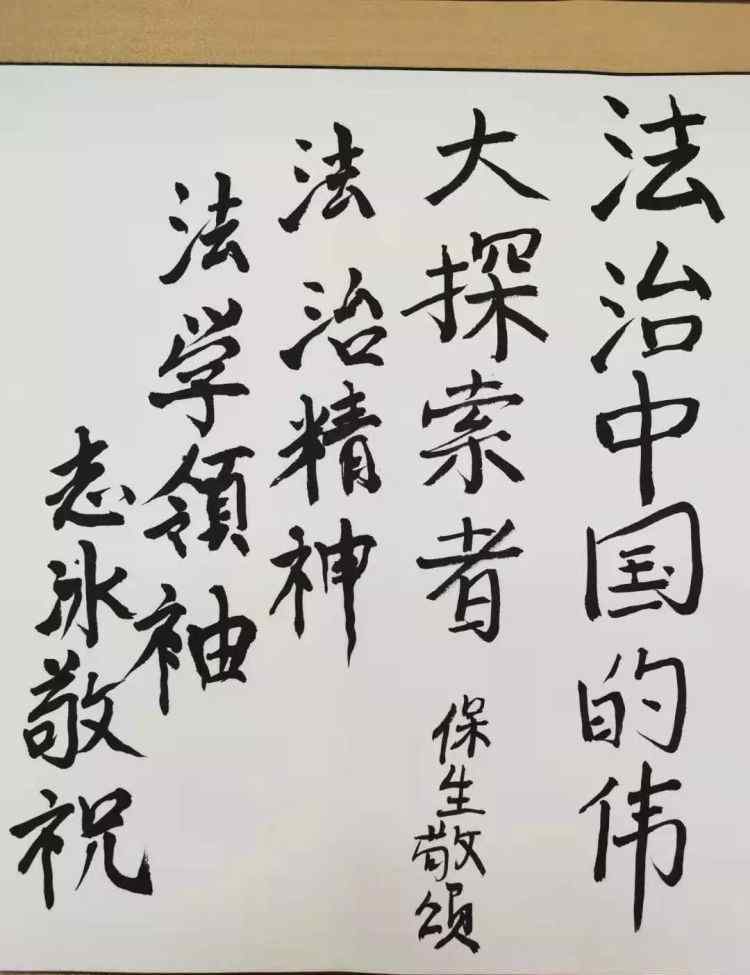 法治中国的伟
大探索者
保生敬颂
法治精神
法学領袖
志泳敬祝